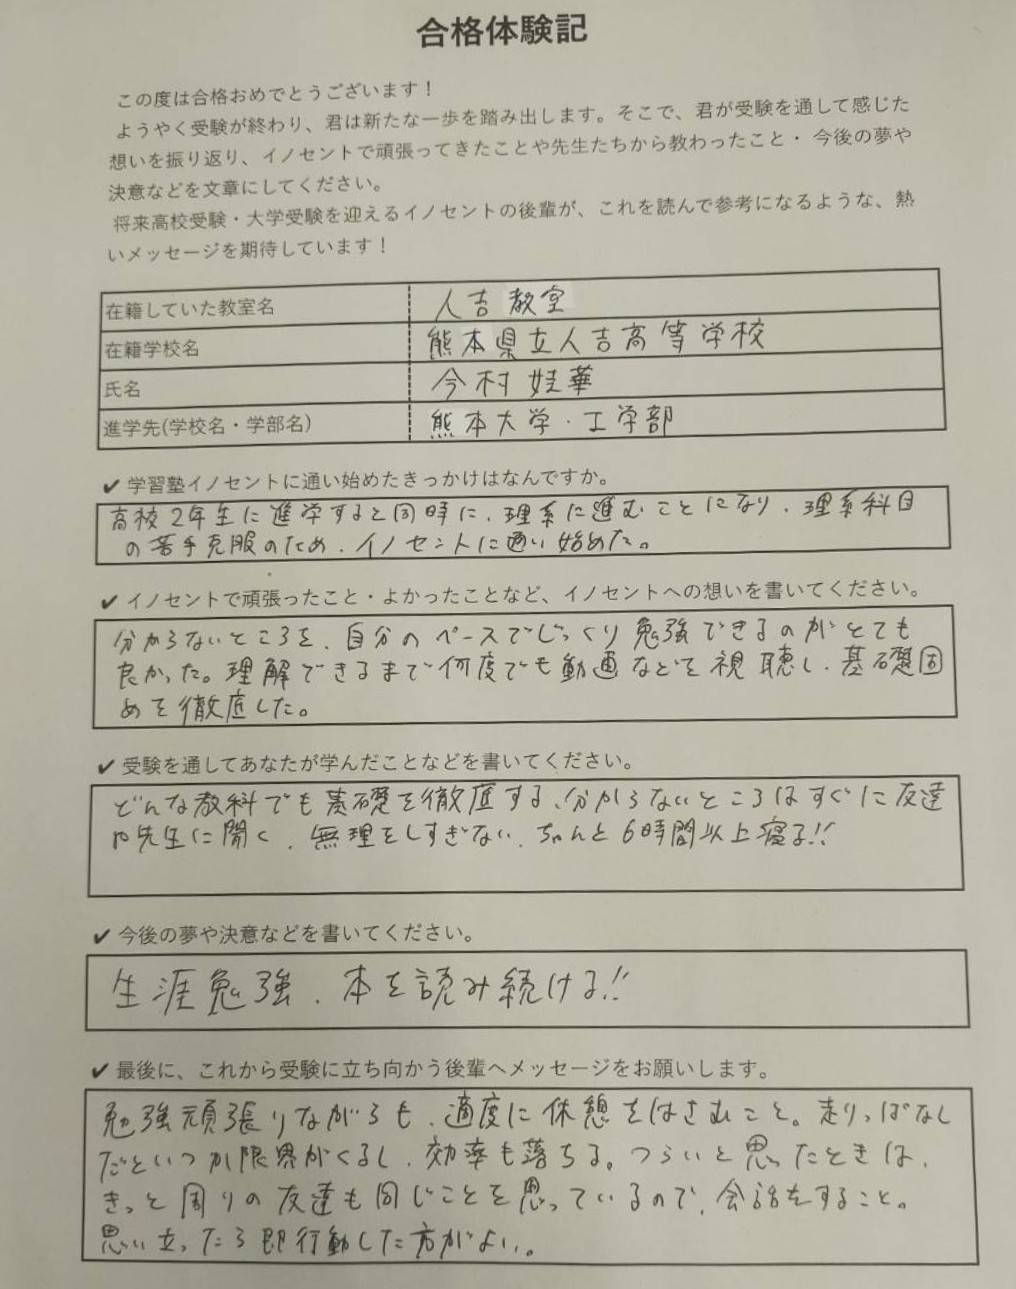 合格体験記
この度は合格おめでとうございます！
ようやく受験が終わり、君は新たな一歩を踏み出します。そこで、君が受験を通して感じた
想いを振り返り、イノセントで頑張ってきたことや先生たちから教わったこと・ 今後の夢や
決意などを文章にしてください。
将来高校受験・大学受験を迎えるイノセントの後輩が、これを読んで参考になるような、熱
いメッセージを期待しています！
在籍していた教室名 人吉教室
在籍学校名 熊本県立人吉高等学校
氏名 今村娃華
進学先(学校名・学部名) 熊本大学・工学部
✔ 学習塾イノセントに通い始めたきっかけはなんですか。
高校2年生に進学すると同時に、理系に進むことになり、理系科目
の苦手克服のため、イノセントに通い始めた。
✔ イノセントで頑張ったこと・よかったことなど、イノセントへの想いを書いてください。
分からないところを、自分のペースでじっくり勉強できるのがとても
良かった。理解できるまで何度でも動画などを視聴し、基礎固
めを徹底した。
✔ 受験を通してあなたが学んだことなどを書いてください。
どんな教科でも基礎を徹底する、分からないところはすぐに友達
や先生に聞く、無理をしすぎない、ちゃんと6時間以上寝る!!
✔ 今後の夢や決意などを書いてください。
生涯勉強、本を読み続ける!!
✔ 最後に、これから受験に立ち向かう後輩へメッセージをお願いします。
勉強頑張りながらも、適度に休憩をはさむこと。走りっぱなし
だといつか限界がくるし、効率も落ちる。つらいと思ったときは、
きっと周りの友達も同じことを思っているので、会話をすること。
思い立ったら即行動した方がよい。